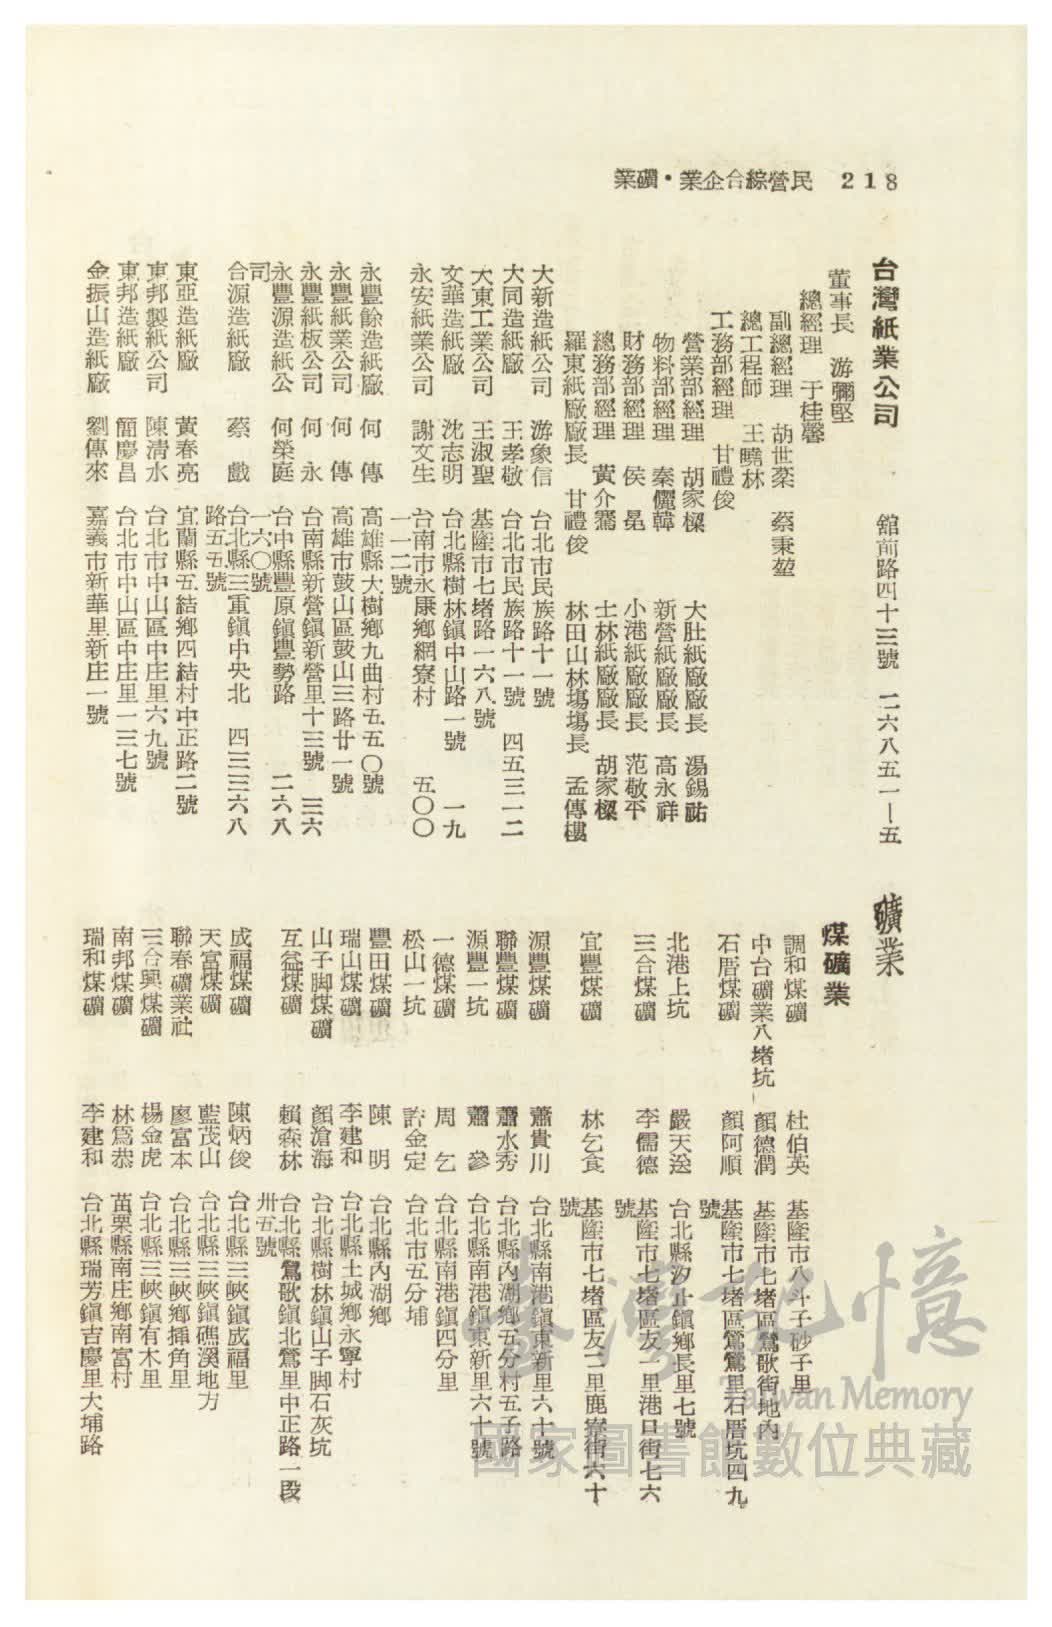 業礦・業企合綜營民 218
台灣紙業公司 舘前路四十三號 二六八五一─五
董事長 游彌堅
總經理 于桂馨
副總經理 胡世棻 蔡秉堃
總工程師 王曉林
工務部經理 甘禮俊
營業部經理 胡家樑 大肚紙廠廠長 湯錫祐
物料部經理 秦儷韓 新營紙廠廠長 高永祥
財務部經理 侯昆 小港紙廠廠長 范敬平
總務部經理 黃介騫 士林紙廠廠長 胡家樑
羅東紙廠廠長 甘禮俊 林田山林塲塲長 孟傳樓
大新造紙公司 游象信 台北市民族路十一號
大同造紙廠 王孝敬 台北市民族路十一號 四五三一二
大東工業公司 王淑聖 基隆市七堵路一六八號
文華造紙廠 沈志明 台北縣樹林鎮中山路一號 一九
永安紙業公司 謝文生 台南市永康鄉網寮村 五〇〇
一一二號
永豐餘造紙廠 何傳 高雄縣大樹鄉九曲村五五〇號
永豐紙業公司 何傳 高雄市鼓山區鼓山三路廿一號
永豐紙板公司 何永 台南縣新營鎮新營里十三號 三六
永豐源造紙公 何榮庭 台中縣豐原鎮豐勢路 二六八
司 一六〇號
合源造紙廠 蔡戲 台北縣三重鎮中央北 四三三六八
路五五號
東亞造紙廠 黃春亮 宜蘭縣五結鄉四結村中正路二號
東邦製紙公司 陳清水 台北市中山區中庄里六九號
東邦造紙廠 簡慶昌 台北市中山區中庄里一三七號
金振山造紙廠 劉傳來 嘉義市新華里新庄一號
礦業
煤礦業
調和煤礦 杜伯英 基隆市八斗子砂子里
中台礦業八堵坑 顏德潤 基隆市七堵區鶯歌街地內
石厝煤礦 顏阿順 基隆市七堵區鶯鶯里石厝坑四九
號
北港上坑 嚴天送 台北縣汐止鎮鄉長里七號
三合煤礦 李儒德 基隆市七堵區友一里港口街七六
號
宜豐煤礦 林乞食 基隆市七堵區友二里鹿寮街六十
號
源豐煤礦 蕭貴川 台北縣南港鎮東新里六十號
聯豐煤礦 蕭水秀 台北縣內湖鄉五分村五子路
源豐一坑 蕭參 台北縣南港鎮東新里六十號
一德煤礦 周乞 台北縣南港鎮四分里
松山一坑 許金定 台北市五分埔
豐田煤礦 陳明 台北縣內湖鄉
瑞山煤礦 李建和 台北縣土城鄉永寧村
山子脚煤礦 顏滄海 台北縣樹林鎮山子脚石灰坑
互益煤礦 賴森林 台北縣鶯歌鎮北鶯里中正路一段
卅五號
成福煤礦 陳炳俊 台北縣三峽鎮成福里
天富煤礦 藍茂山 台北縣三峽鎮礁溪地方
聯春礦業社 廖富本 台北縣三峽鄉揷角里
三合興煤礦 楊金虎 台北縣三峽鎮有木里
南邦煤礦 林爲恭 苗栗縣南庄鄉南富村
瑞和煤礦 李建和 台北縣瑞芳鎮吉慶里大埔路
臺灣記憶
Taiwan Memory
國家圖書館數位典藏